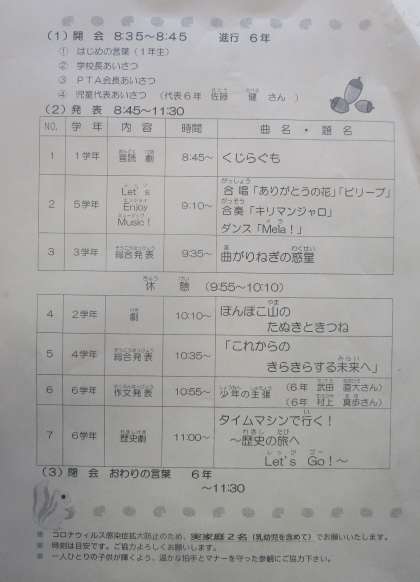 (1) 開 会 8:35～8:45 進行 6年
① はじめの言葉（1年生）
② 学校長あいさつ
③ PTA会長あいさつ
④ 児童代表あいさつ （代表6年 佐藤 健 さん ）
(2) 発 表 8:45～11:30
NO. 学 年 内 容 時間 曲 名 ・ 題 名
1 1学年 音読 劇 8:45～ くじらぐも
2 5学年 Let's Enjoy Music! 9:10～ 合唱「ありがとうの花」「ビリーブ」
合奏「キリマンジャロ」
ダンス「Mela！」
3 3学年 総合発表 9:35～ 曲がりねぎの惑星
休 憩 （9:55～10:10）
4 2学年 劇 10:10～ ぽんぽこ山の
たぬきときつね
5 4学年 総合発表 10:35～ 「これからの
きらきらする未来へ」
6 6学年 作文発表 10:55～ 少年の主張 （6年 武田 直大さん）
（6年 村上 真歩さん）
7 6学年 歴史劇 11:00～ タイムマシンで行く！
～歴史の旅へ
Let's Go！～
(3) 閉 会 おわりの言葉 6年
～11:30
コロナウィルス感染症拡大防止のため、実家庭2名（乳幼児を含めて）でお願いいたします。
時刻は目安です。ご協力よろしくお願いします。
一人ひとりの子供が輝くよう、温かな拍手とマナーを守った参観にご協力下さい。